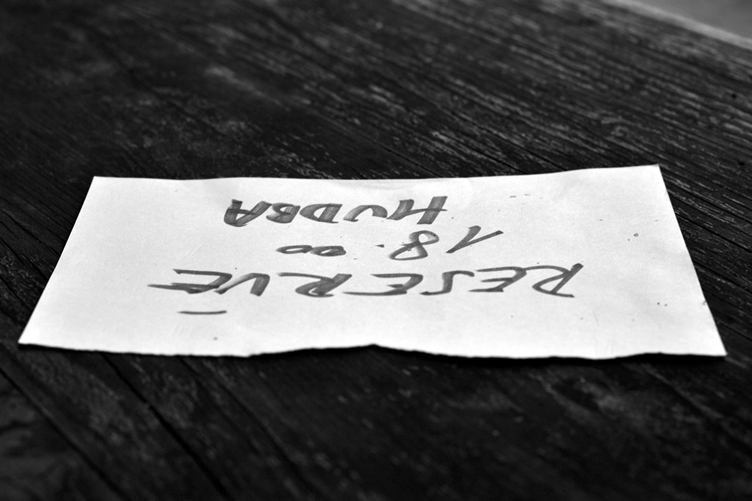 RESERVÉ
18.00
HUDBA